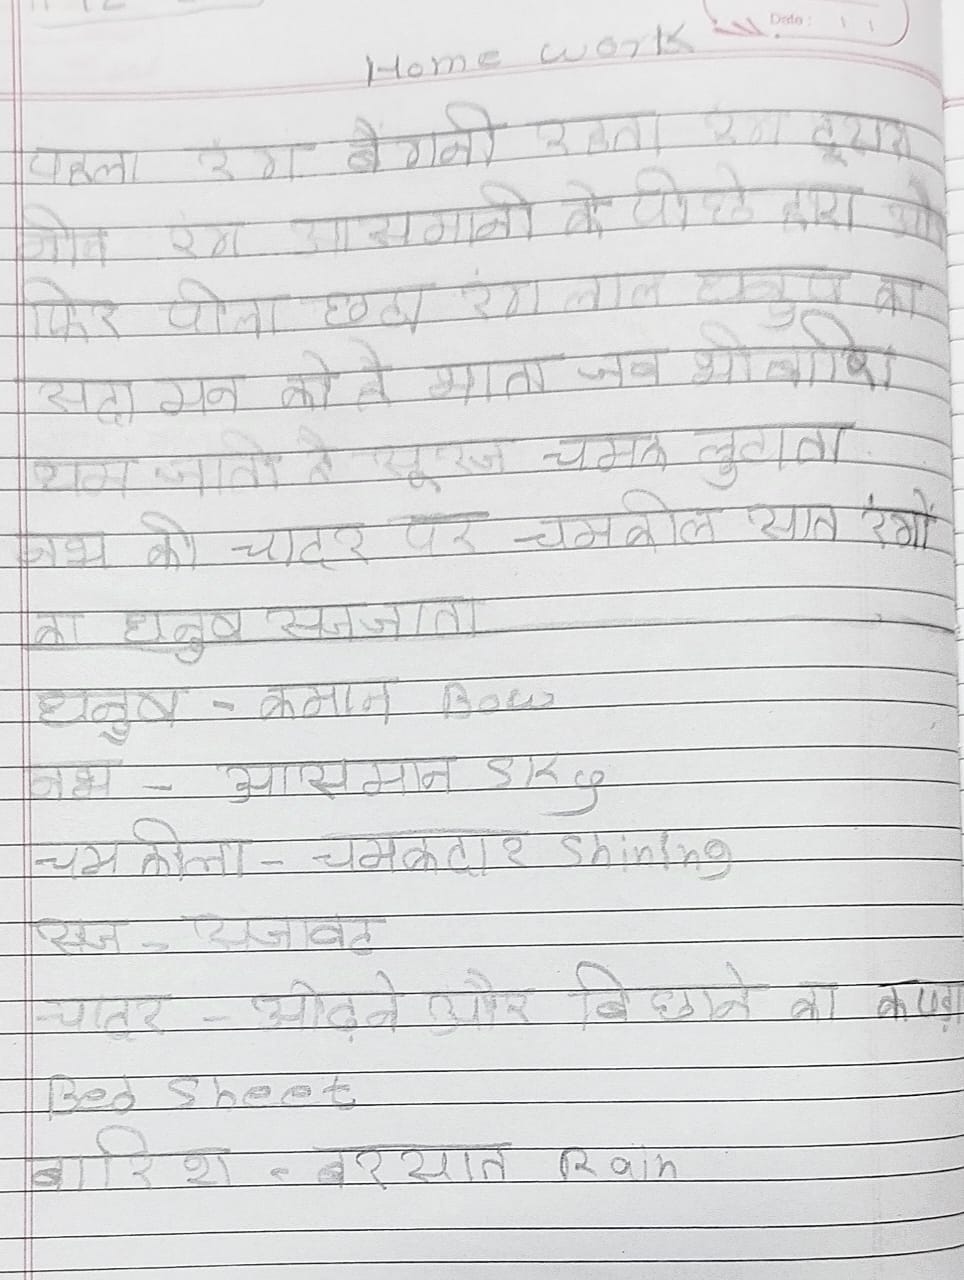 Date :
Home work
पहला रंग बैगनी रहता रंग दूसरा
रंग आसमानी के पीछे हारा
फिर पीला छठा रंग लाल धनुष का
सदा मन को है भाता जब भी बारिश
थम जाती है सूरज चमक लुटाता
नभ की चादर पर चमकील सात रंगों
का धनुष सजजाता
धनुष - कमान Bow
नभ - आसमान Sky
चमकीला - चमकदार Shining
सज - सजावट
चादर - ओढ़ने और बिछाने का कपड़ा
Bed Sheet
बारिश - बरसात Rain